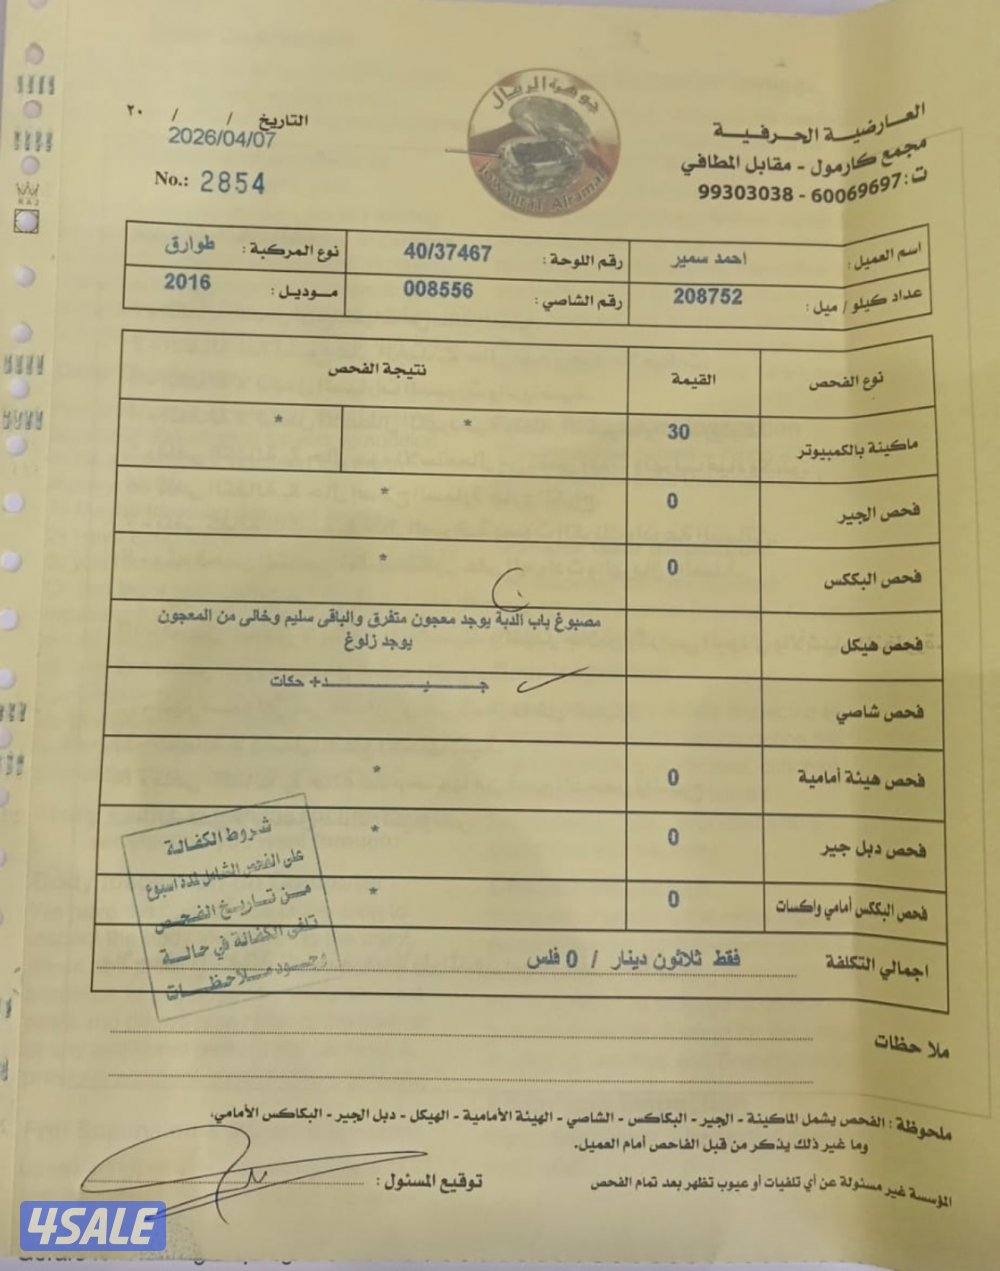 العارضية الحرفية
مجمع كارمول - مقابل المطافي
ت: 60069697 - 99303038
جوهرة الرمال
Jowharat Alramal
التاريخ / / ٢٠
2026/04/07
No.: 2854
اسم العميل: احمد سمير رقم اللوحة: 40/37467 نوع المركبة: طوارق
عداد كيلو / ميل: 208752 رقم الشاصي: 008556 موديل: 2016
نوع الفحص القيمة نتيجة الفحص
ماكينة بالكمبيوتر 30 * *
فحص الجير 0 *
فحص البككس 0 *
فحص هيكل مصبوغ باب الدبة يوجد معجون متفرق والباقى سليم وخالى من المعجون
يوجد زلوغ
فحص شاصي جيد+ حكات
فحص هيئة أمامية 0 *
فحص دبل جير 0 *
فحص البككس أمامي واكسات 0 *
اجمالي التكلفة فقط ثلاثون دينار / 0 فلس
شروط الكفالة
على الفحص الشامل لمدة اسبوع
من تاريخ الفحص
تلغى الكفالة في حالة
وجود ملاحظات
ملاحظات
ملحوظة: الفحص يشمل الماكينة - الجير - البكاكس - الشاصي - الهيئة الأمامية - الهيكل - دبل الجير - البكاكس الأمامي.
وما غير ذلك يذكر من قبل الفاحص أمام العميل.
المؤسسة غير مسئولة عن أي تلفيات أو عيوب تظهر بعد تمام الفحص
توقيع المسئول:
4SALE
RAJ